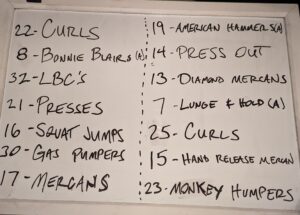 22- CURLS
8 - BONNIE BLAIRS (A)
32 - LBC'S
21 - PRESSES
16 - SQUAT JUMPS
30 - GAS PUMPERS
17 - MERCANS
19 - AMERICAN HAMMERS (A)
14 - PRESS OUT
13 - DIAMOND MERCANS
7 - LUNGE & HOLD (A)
25 - CURLS
15 - HAND RELEASE MERCAN
23 - MONKEY HUMPERS